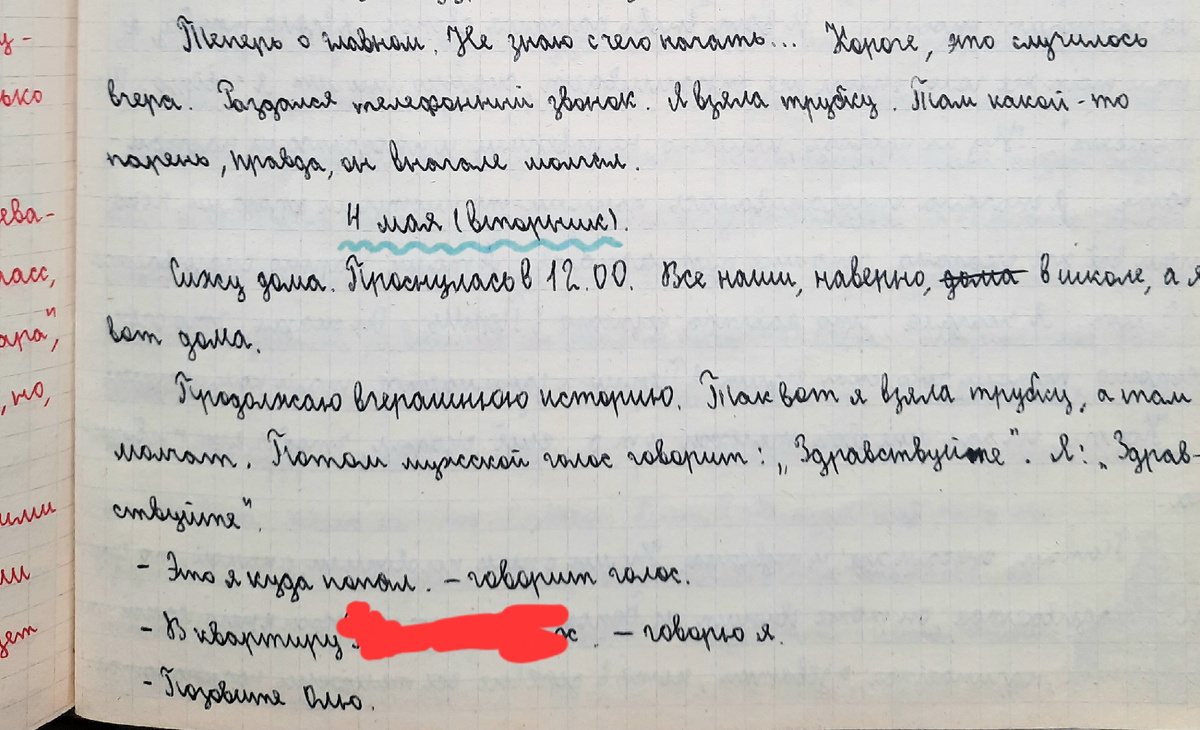 Теперь о главном. Не знаю с чего начать... Короче, это случилось
вчера. Раздался телефонный звонок. Я взяла трубку. Там какой-то
парень, правда, он вначале молчал.
4 мая (вторник).
Сижу дома. Проснулась в 12.00. Все наши, наверно, дома в школе, а я
вот дома.
Продолжаю вчерашнюю историю. Так вот я взяла трубку, а там
молчат. Потом мужской голос говорит: „Здравствуйте". Я: „Здрав-
ствуйте".
- Это я куда попал. - говорит голос.
- В квартиру - говорю я.
- Позовите Олю.
ько
ева-
ласс,
ара",
, но,
ими
ми
дет